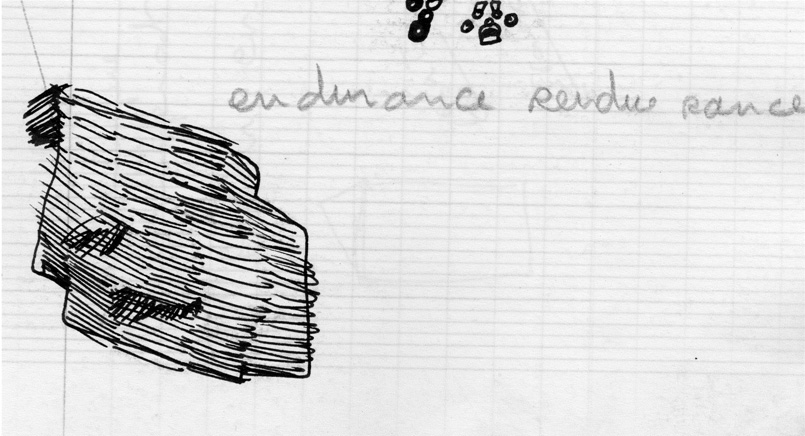 endurance rendue rance